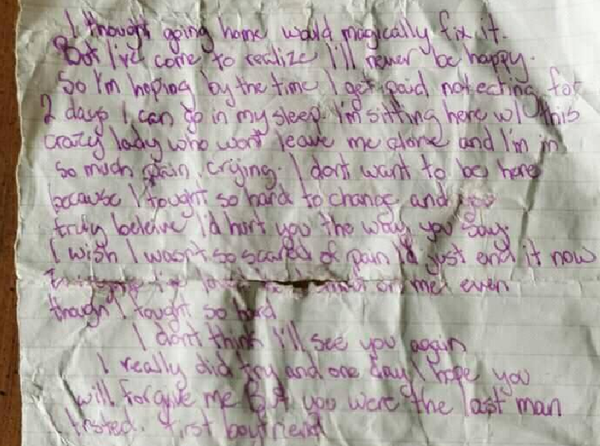 I thought going home would magically fix it.
But I've come to realize I'll never be happy.
So I'm hoping by the time I get paid not eating for
2 days I can go in my sleep. I'm sitting here w/ this
crazy lady who wont leave me alone and I'm in
so much pain crying. I dont want to be here
because I fought so hard to change and you
truly beleive I'd hurt you the way you say.
I wish I wasn't so scared of pain I'd just end it now
on me even
though I fought so hard
I dont think I'll see you again
I really did try and one day I hope you
will forgive me But you were the last man
I first boyfriend